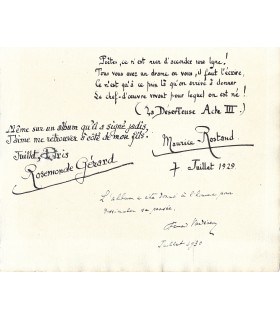 Poètes, ce n'est rien d'accorder une lyre !
Tous vous avez un drame en vous, il faut l'écrire,
Ce n'est qu'à ce prix là qu'on arrive à donner
Le chef-d'œuvre vivant pour lequel on est né !
(La Déserteuse Acte III)
Maurice Rostand
7 Juillet 1929.
Même sur un album qu'il a signé jadis,
J'aime me retrouver à côté de mon fils.
Juillet, Paris
Rosemonde Gérard
L'album a été donné à l'heure pour
sa
Juillet 1930